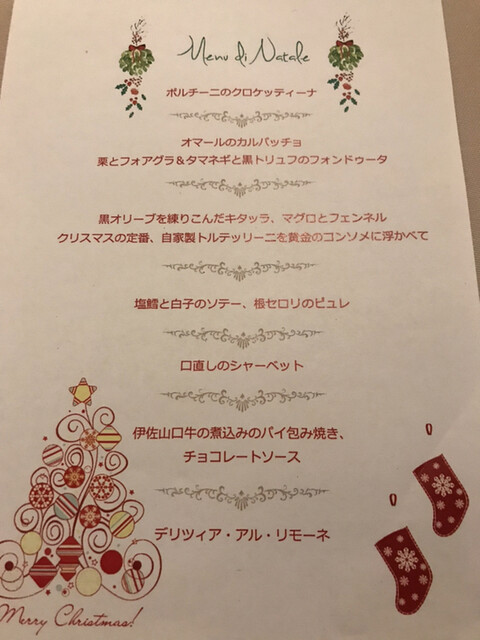 Menu di Natale
ポルチーニのクロケッティーナ
オマールのカルパッチョ
栗とフォアグラ＆タマネギと黒トリュフのフォンドゥータ
黒オリーブを練りこんだキタッラ、マグロとフェンネル
クリスマスの定番、自家製トルテッリーニを黄金のコンソメに浮かべて
塩鱈と白子のソテー、根セロリのピュレ
口直しのシャーベット
伊佐山口牛の煮込みのパイ包み焼き、
チョコレートソース
デリツィア・アル・リモーネ
Merry Christmas!